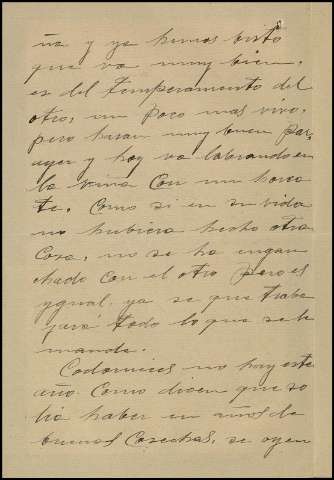 ña y ya hemos visto
que va muy bien,
es del temperamento del
otro, un poco mas vivo,
pero haran muy buen par,
ayer y hoy va labrando en
la viña con un horca
te, como si en su vida
no hubiera hecho otra
cosa, no se ha engan
chado con el otro pero es
ygual. ya se que traba
jará todo lo que se le
mande.
Codornices no hay este
año. Como dicen que so
lia haber en años de
buenas cosechas, se oyen